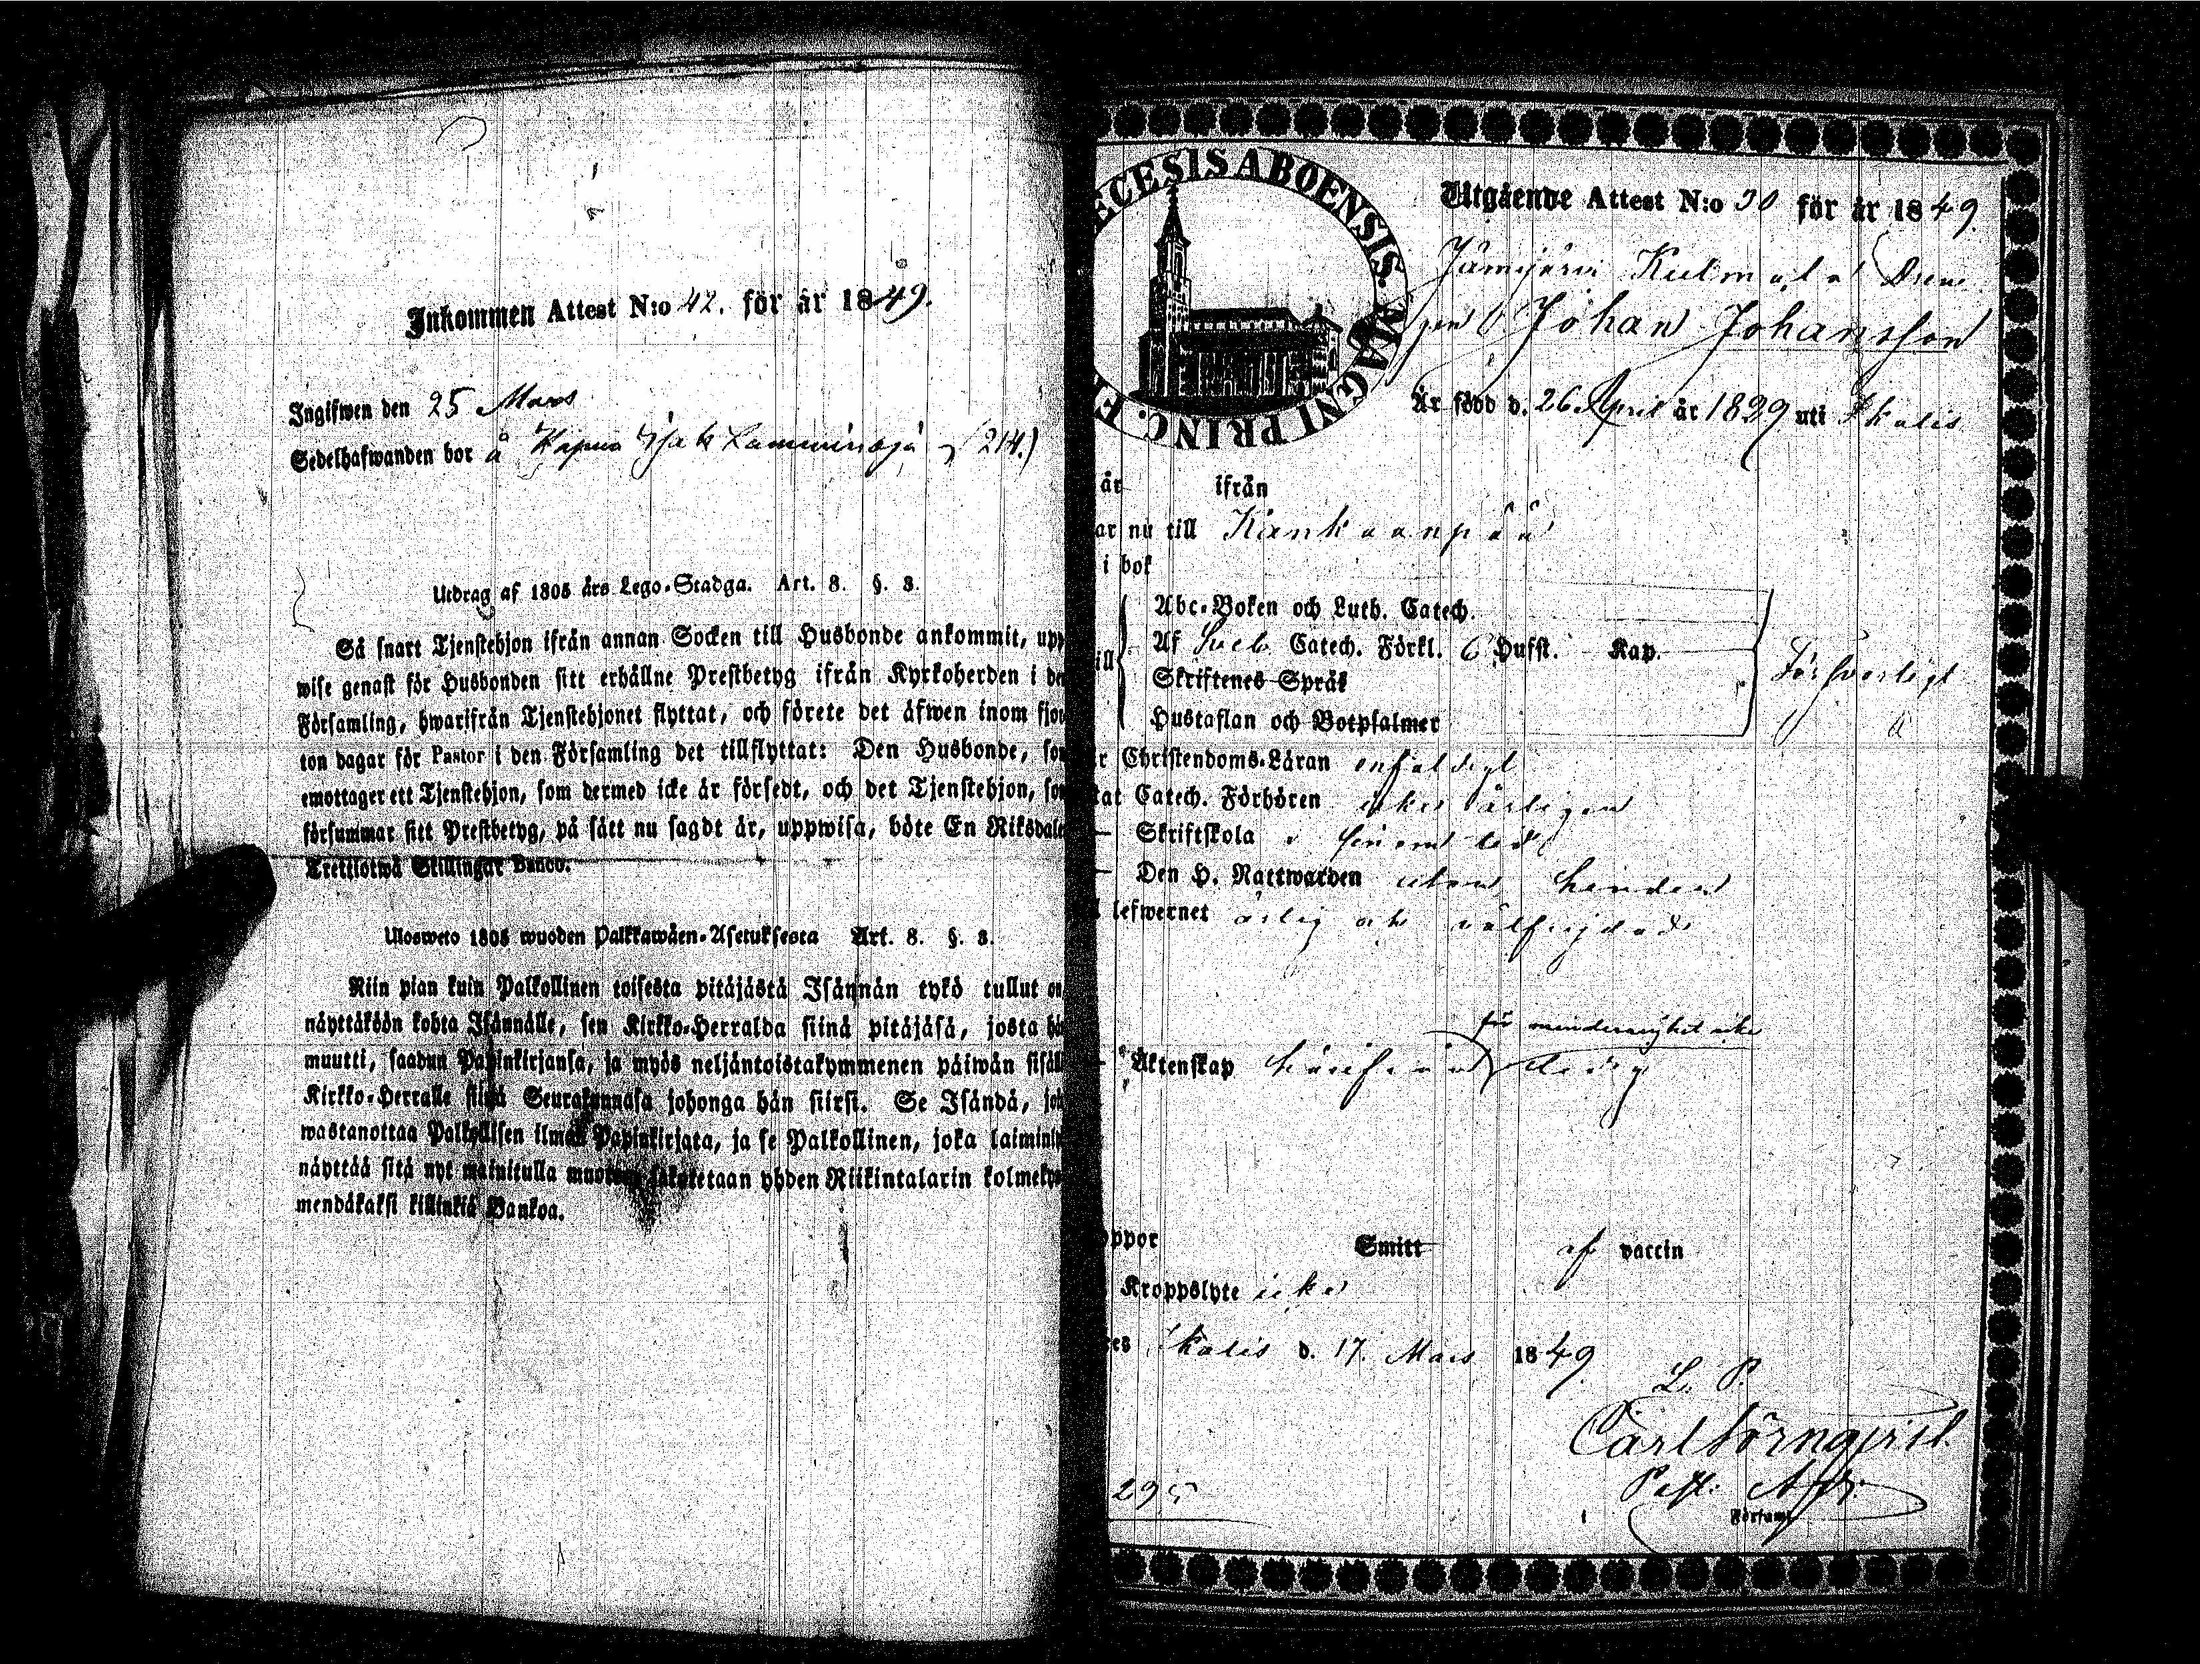 Inkommen Attest N:o 42. för år 1849.
Ingifwen den 25 Mars
Sedelhafwanden bor å 214.)
Utdrag af 1805 års Lego-Stadga. Art. 8. §. 3.
Så snart Tjenstehjon ifrån annan Socken till Husbonde ankommit, upp
wise genast för Husbonden sitt erhållne Prestbetyg ifrån Kyrkoherden i de
Församling, hwarifrån Tjenstehjonet flyttat, och förete det äfwen inom fjor
ton dagar för Pastor i den Församling det tillflyttat: Den Husbonde, som
emottager ett Tjenstehjon, som dermed icke är försedt, och det Tjenstehjon, som
försummar sitt Prestbetyg, på sätt nu sagdt är, uppwisa, böte En Riksdale
Trettiotwå Skillingar Banco.
Ulosweto 1805 wuoden Palkkawäen-Asetuksesta Art. 8. §. 3.
Niin pian kuin Palkollinen toisesta pitäjästä Isännän tykö tullut on
näyttäköön kohta Isännälle, sen Kirkko-Herralda siinä pitäjäsä, josta hän
muutti, saadun Papinkirjansa, ja myös neljäntoistakymmenen päiwän sisäll
Kirkko-Herralle siinä Seurakunnasa johonga hän siirsi. Se Isändä, jok
wastanottaa Palkollisen ilman Papinkirjata, ja se Palkollinen, joka laiminly
näyttää sitä nyt mainitulla muotoon sakotetaan yhden Riikintalarin kolmeky
mendäkaksi killinkiä Bankoa.
ECESIS ABOENSIS. MAGNI PRINC. F
Utgående Attest N:o 30 för år 1849.
Jämijärvi Dren
gen Johan Johansson
Är född d. 26 April år 1829 uti Ikalis
år ifrån
ar nu till Kankaanpää
i bok
Abc-Boken och Luth. Catech.
ill Af Sveb. Catech. Förkl. 6 Hufst. Kap.
Försvarligt
Skriftenes Språk
Hustaflan och Botpsalmer
r Christendoms-Läran enfaldigt
tat Catech. Förhören årligen
Skriftskola
Den H. Nattwarden utan hinder
lefwernet ärlig och välfrejdad
för minderårighet icke
Äktenskap hinfri ledig
oppor Smitt af vaccin
Kroppslyte icke
es Ikalis d. 17. Mars 1849.
L. P.
Carl Törnqvist.
Past. Adj.
Församl.
295